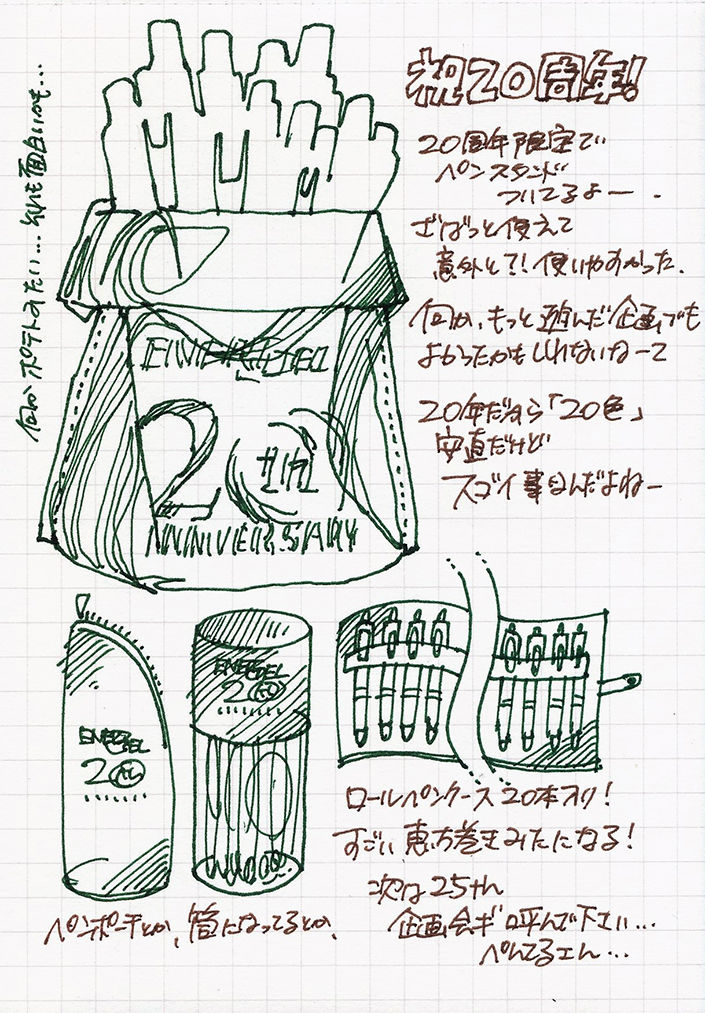 祝20周年!
20周年限定で
ペンスタンド
ついてるよー.
ざばっと使えて
意外と?!使いやすかった.
何か、もっと遊んだ企画でも
よかったかもしれないねーて
20年だから「20色」
安直だけど
スゴイ事なんだよねー
何かポテトみたい…それも面白いかも…
ENERGEL
20th
ANNIVERSARY
ENERGEL
20th
ENERGEL
20th
ロールペンケース20本入り!
すごい恵方巻きみたになる!
次は25th
企画会ギ呼んで下さい…
ぺんてるさん…
ペンポーチとか、筒になってるとか、